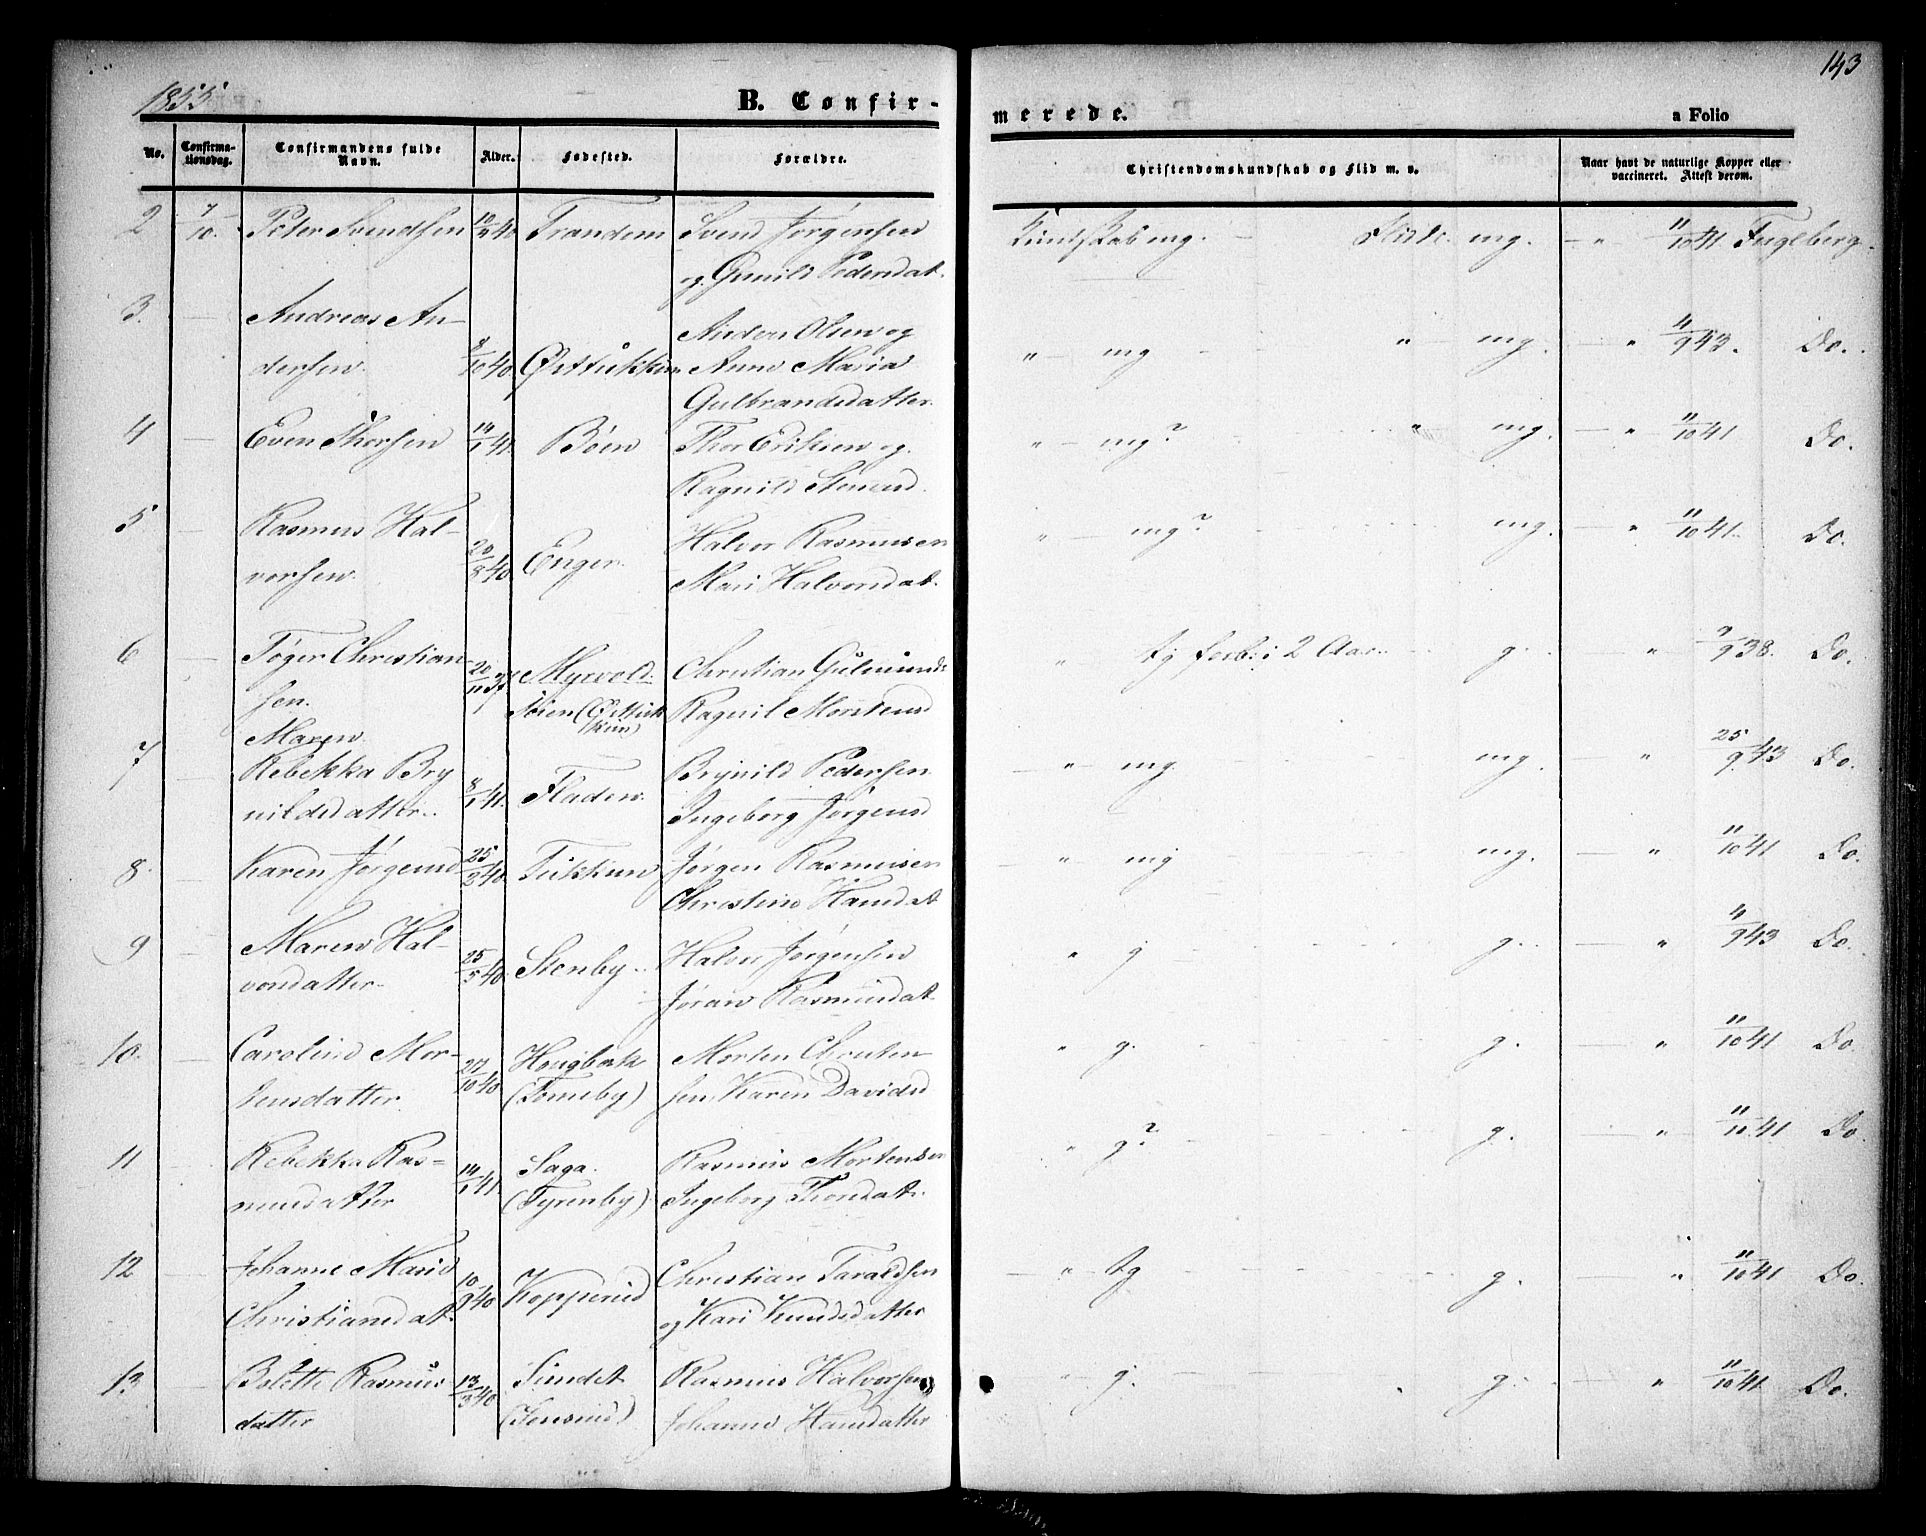 1855.
143
B. Confir-
merede.
a Folio
No.
Confirma-
tionsdag.
Confirmandens fulde
Navn.
Alder.
Fødested.
Forældre.
Christendomskundskab og Flid m. v.
Naar havt de naturlige Kopper eller
vaccineret. Attest derom.
2 7/10. Peter Svendsen 40 Trandem Svend Jørgensen Kundskab mg. Flid mg. " 11/10 41 Fugleberg.
og Gunild Pedersdat.
3. Andreas An-
dersen. 9/10 40. Anders Olsen og " mg " mg. " 4/9 43. Do.
Anne Maria
Gulbrandsdatter.
4 Even Thorsen 14/1 41. Bøen Thor Eriksen og " mg? " mg. " 11/10 41 Do.
Ragnild
5 Rasmus Hal-
vorsen. 20/8 40 Enger. Halvor Rasmusen " mg? mg. " 11/10 41. Do.
Mari Halvorsdat.
6 Tøger Christian-
sen. 20/11 37 Myrvold- Christian " tg forb: i 2 Aar. g. " 9/9 38. Do.
Ragnil
7 Maren
Rebekka Bry
nildsdatter. 8/1 41. Fladen. Brynild Pedersen " mg. mg. " 25/9 43 Do.
Ingeborg Jørgensd
8. Karen Jørgensd 25/2 40. Jørgen Rasmusen " mg mg. " 11/10 41 Do.
Christine Hansdat
9 Maren Hal-
vorsdatter 25/5 40. Stenby. Halvor Jørgensen " g g. " 4/9 43 Do.
Jøran Rasmusdat
10. Caroline Mor-
tensdatter. 27/10 40 Morten Christen- " g. g. " 11/10 41 Do.
(Tomeby) sen Karen Davidsd
11 Rebekka Ras-
musdatter 14/1 41. Saga. Rasmus Mortensen " g? g. " 11/10 41 Do
(Tyrenby) Ingeborg Thoresdat.
12 Johanne Marie
Christiansdat. 10/9 40 Kopperud Christian Taraldsen " tg g. " 11/10 41 Do.
og Kari Knudsdatter
13. Bolette Rasmus
datter 13/3 40 Rasmus Halvorsen " g. g. " 11/10 41. Do.
Johanne Hansdatter